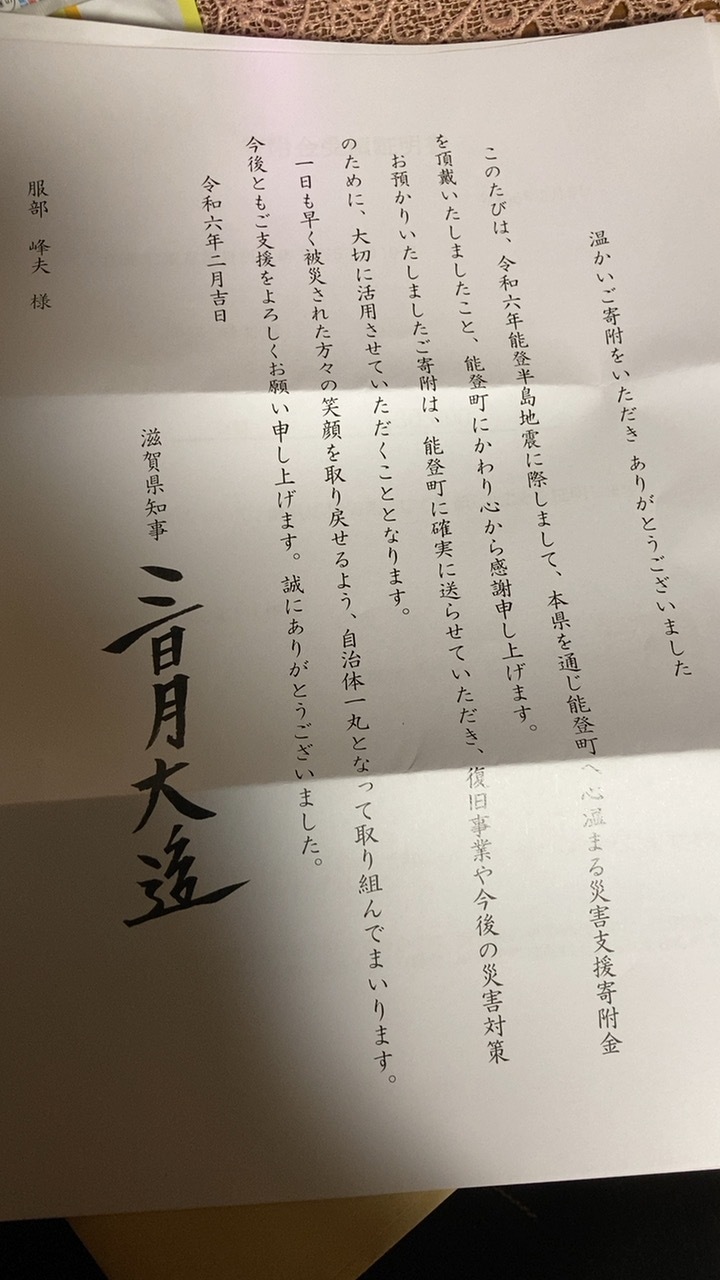 温かいご寄附をいただき ありがとうございました
このたびは、令和六年能登半島地震に際しまして、本県を通じ能登町へ心温まる災害支援寄附金
を頂戴いたしましたこと、能登町にかわり心から感謝申し上げます。
お預かりいたしましたご寄附は、能登町に確実に送らせていただき、復旧事業や今後の災害対策
のために、大切に活用させていただくこととなります。
一日も早く被災された方々の笑顔を取り戻せるよう、自治体一丸となって取り組んでまいります。
今後ともご支援をよろしくお願い申し上げます。誠にありがとうございました。
令和六年二月吉日
滋賀県知事 三日月大造
服部 峰夫 様